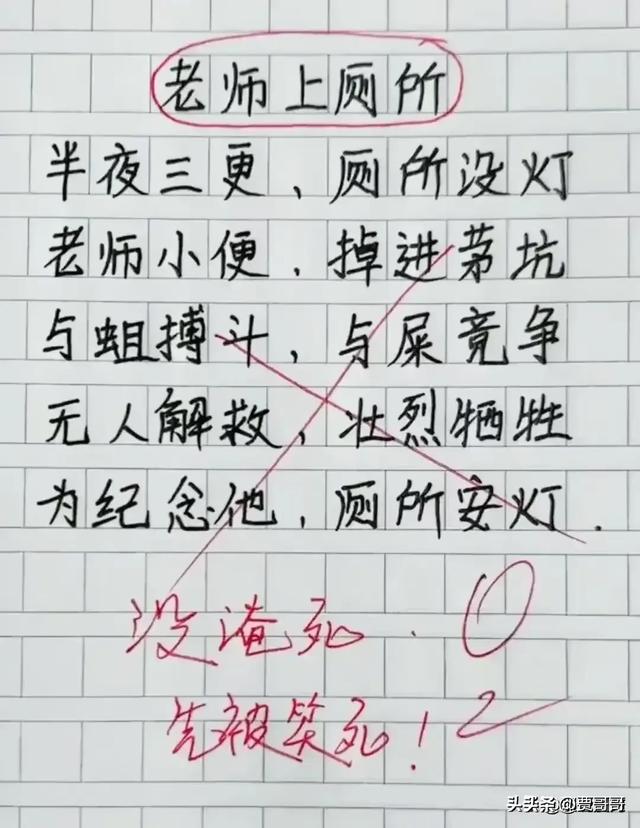 老师上厕所
半夜三更、厕所没灯
老师小便、掉进茅坑
与蛆搏斗、与屎竞争
无人解救、壮烈牺牲
为纪念他、厕所安灯.
没淹死. 0
先被笑死!
头条@贾哥哥